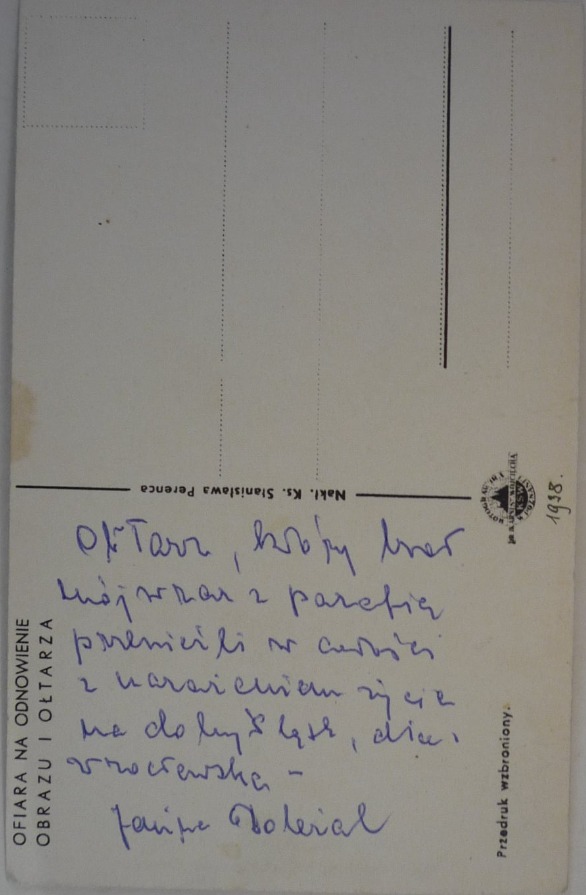 OFIARA NA ODNOWIENIE
OBRAZU I OŁTARZA
Nakł. Ks. Stanisława Perenca
Ołtarz, który brat
mój wraz z parafią
przenieśli w całości
z narażeniem życia
na dolny Śląsk, diec.
wrocławska –
Janina Doleżal
1938.
Przedruk wzbroniony.